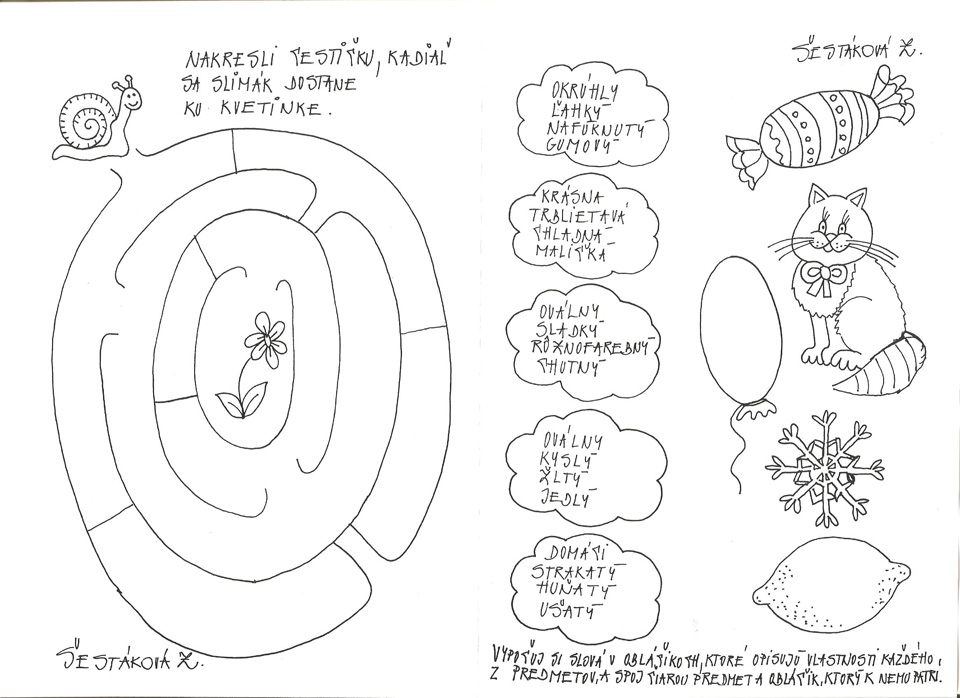 NAKRESLI CESTIČKU, KADIAĽ
SA SLIMÁK DOSTANE
KU KVETINKE.
ŠESTÁKOVÁ Z.
ŠESTÁKOVÁ Z.
OKRÚHLY
ĽAHKÝ
NAFÚKNUTÝ
GUMOVÝ
KRÁSNA
TRBLIETAVÁ
CHLADNÁ
MALIČKÁ
OVÁLNY
SLADKÝ
RÔZNOFAREBNÝ
CHUTNÝ
OVÁLNY
KYSLÝ
ŽLTÝ
JEDLÝ
DOMÁCI
STRAKATÝ
HUŇATÝ
UŠATÝ
VYPOČUJ SI SLOVÁ V OBLÁČIKOCH, KTORÉ OPISUJÚ VLASTNOSTI KAŽDÉHO
Z PREDMETOV, A SPOJ ČIAROU PREDMET A OBLÁČIK, KTORÝ K NEMU PATRÍ.